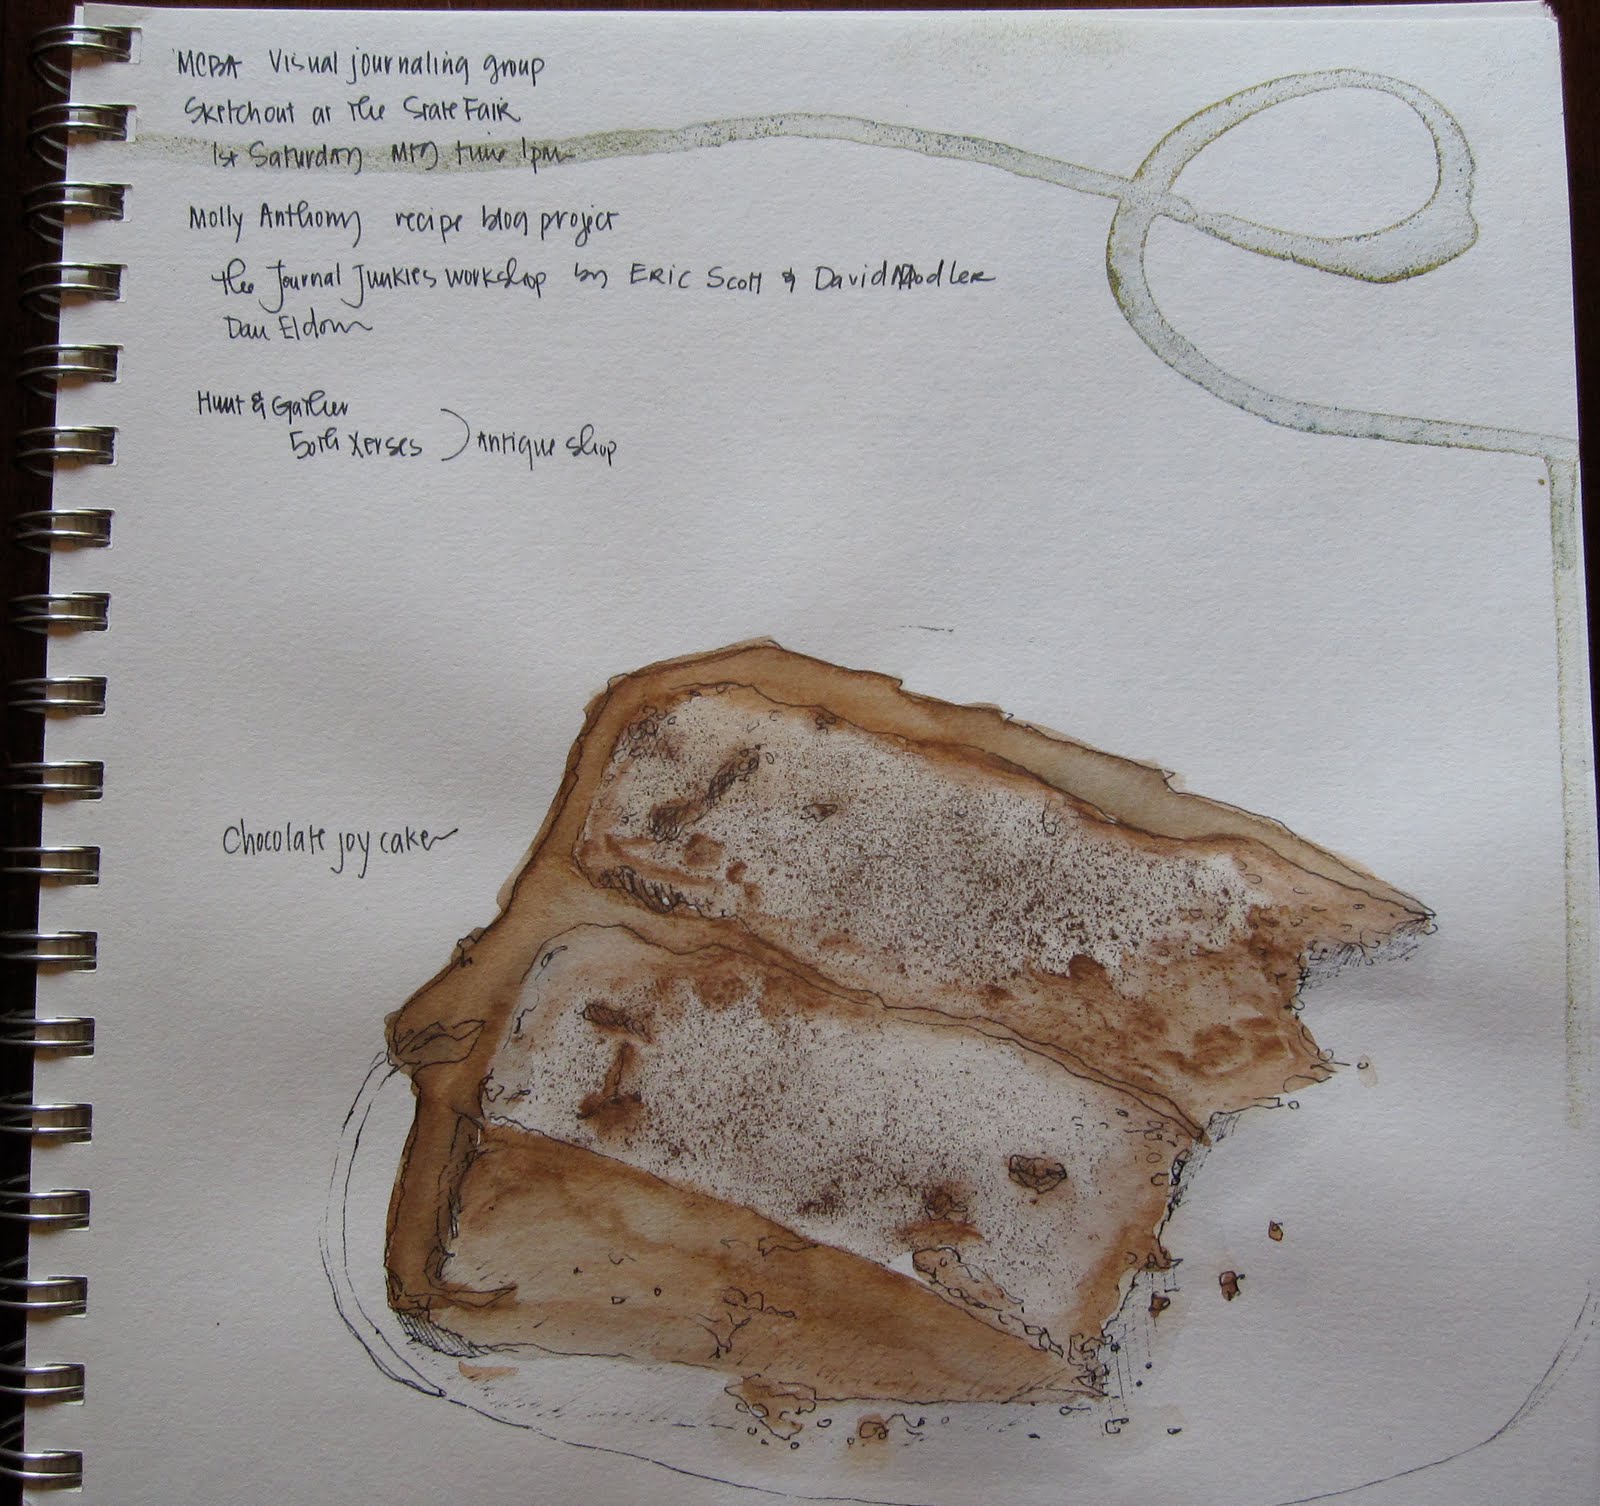 MCBA Visual journaling group
Sketchout at the State Fair
1st Saturday Mtg time 1pm
Molly Anthony recipe blog project
the Journal Junkies workshop by ERIC SCOTT & David Modler
Dan Eldon
Hunt & Gather
50th Xerses ) Antique shop
Chocolate joy cake